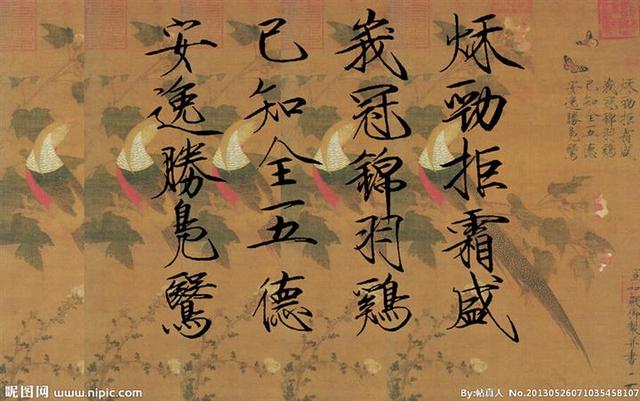 秋勁拒霜盛
峩冠錦羽鷄
已知全五德
安逸勝鳧鷖
秋勁拒霜盛
峩冠錦羽鷄
已知全五德
安逸勝鳧鷖
宣和殿御製并書
昵图网 www.nipic.com
By:帖真人 No.20130526071035458107